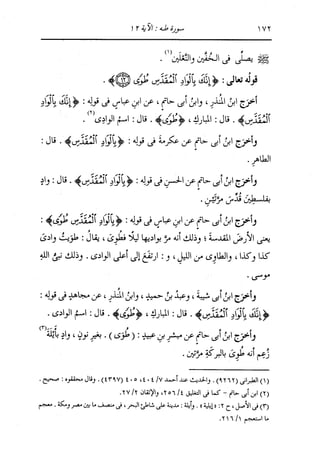 ١٧٢ سورة طه : الآية ١٢
ﷺ يصلى فى الخفين والنعلين(١) .
قولُه تعالى : ﴿إِنَّكَ بِالْوَادِ الْمُقَدَّسِ طُوًى ﴿١٢﴾﴾ .
أخرَج ابنُ المنذرِ ، وابنُ أبى حاتمٍ ، عن ابنِ عباسٍ فى قولِه : ﴿إِنَّكَ بِالْوَادِ
الْمُقَدَّسِ﴾ . قال : المباركِ ، ﴿طُوًى﴾ . قال : اسمُ الوادِى(٢) .
وأخرَج ابنُ أبى حاتمٍ عن عكرمةَ فى قولِه : ﴿بِالْوَادِ الْمُقَدَّسِ﴾ . قال :
الطاهرِ .
وأخرَج ابنُ أبى حاتمٍ عن الحسنِ فى قولِه : ﴿بِالْوَادِ الْمُقَدَّسِ﴾ . قال : وادٍ
بفلسطينَ قُدِّس مرَّتينِ .
وأخرَج ابنُ أبى حاتمٍ عن ابنِ عباسٍ فى قولِه : ﴿بِالْوَادِ الْمُقَدَّسِ طُوًى﴾ :
يعنى الأرضَ المقدسةَ ؛ وذلك أنه مرَّ بواديها ليلًا فطوِى ، يقالُ : طوَيتُ وادىَ
كذا وكذا ، والطاوِى من الليلِ ، و : ارتفَع إلى أعلى الوادِى . وذلك نبىُّ اللهِ
موسى .
وأخرَج ابنُ أبى شيبةَ ، وعبدُ بنُ حميدٍ ، وابنُ المنذرِ ، عن مجاهدٍ فى قولِه :
﴿إِنَّكَ بِالْوَادِ الْمُقَدَّسِ﴾ . قال : المباركِ ، ﴿طُوًى﴾ . قال : اسم الوادِى .
وأخرَج ابنُ أبى حاتمٍ عن مبشرِ بنِ عبيدٍ : (طُوَى) . بغيرِ نونٍ ، وادٍ بأيْلةَ(٣)
زعِم أنه طُوِىَ بالبركةِ مرَّتين .
(١) الطبرانى (٩٢٦٢) . والحديث عند أحمد ٧/ ٤٠٤، ٤٠٥ (٤٣٩٧) . وقال محققوه : صحيح .
(٢) ابن أبى حاتم - كما فى التغليق ٤/ ٢٥٦، والإتقان ٢/ ٢٧ .
(٣) فى الأصل ، ح ٢ : «إيلية» . وأيلة : مدينة على شاطئ البحر ، فى منصف ما بين مصر ومكة . معجم
ما استعجم ١/ ٢١٦ .